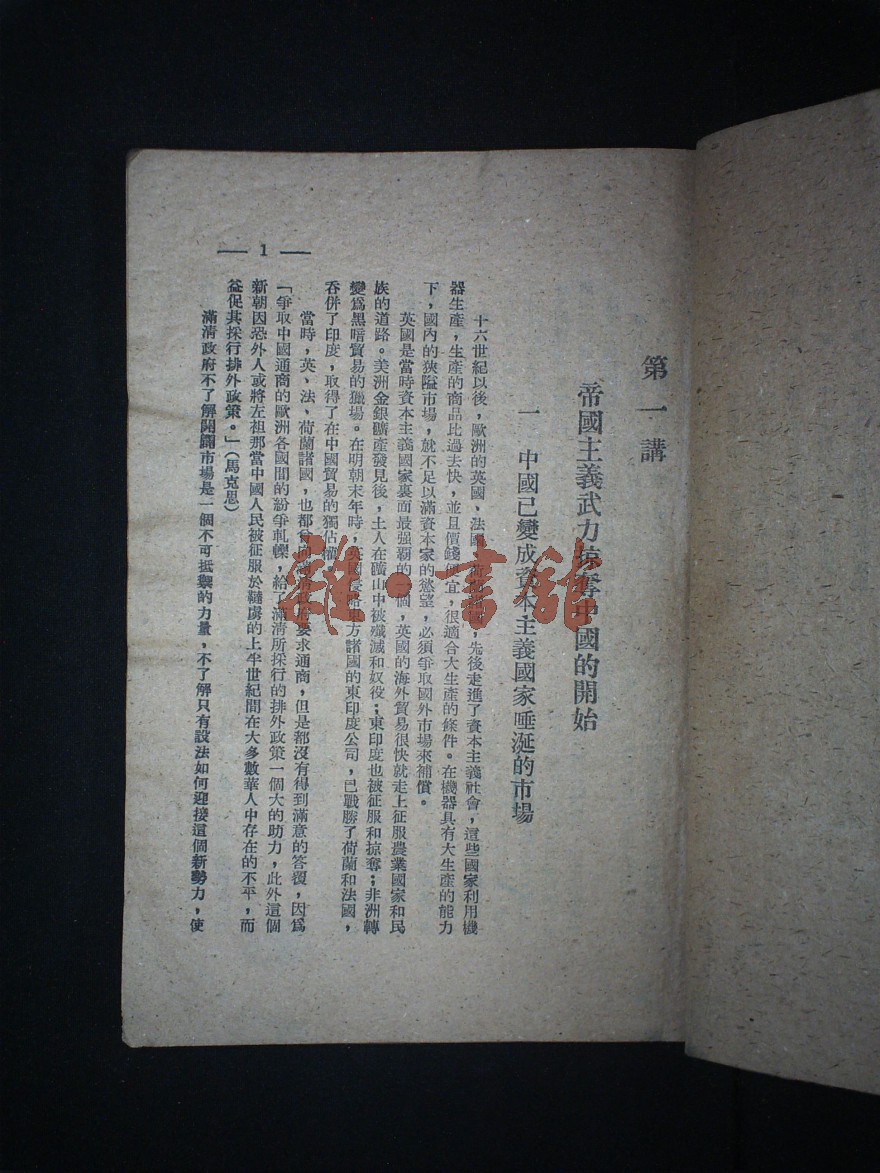 第一講
帝國主義武力掠奪中國的開始
一 中國已變成資本主義國家唾涎的市場
十六世紀以後，歐洲的英國、法國、 先後走進了資本主義社會，這些國家利用機
器生產，生產的商品比過去快，並且價錢便宜，很適合大生產的條件。在機器具有大生產的能力
下，國內的狹隘市場，就不足以滿資本家的慾望，必須爭取國外市場來補償。
英國是當時資本主義國家裏面最强霸的一個，英國的海外貿易很快就走上征服農業國家和民
族的道路。美洲金銀礦產發見後，土人在礦山中被殲滅和奴役；東印度也被征服和掠奪；非洲轉
變爲黑暗貿易的獵場。在明朝末年時，英國侵略東方諸國的東印度公司，已戰勝了荷蘭和法國，
吞併了印度，取得了在中國貿易的獨佔權。
當時，英、法、荷蘭諸國，也都曾向滿清政府要求通商，但是都沒有得到滿意的答覆，因爲
「爭取中國通商的歐洲各國間的紛爭軋轢，給了滿清所採行的排外政策一個大的助力，此外這個
新朝因恐外人或將左袒那當中國人民被征服於韃虜的上半世紀間在大多數華人中存在的不平，而
益促其採行排外政策。」(馬克思)
滿清政府不了解開闢市場是一個不可抵禦的力量，不了解只有設法如何迎接這個新勢力，使
— 1 —
雜·書館